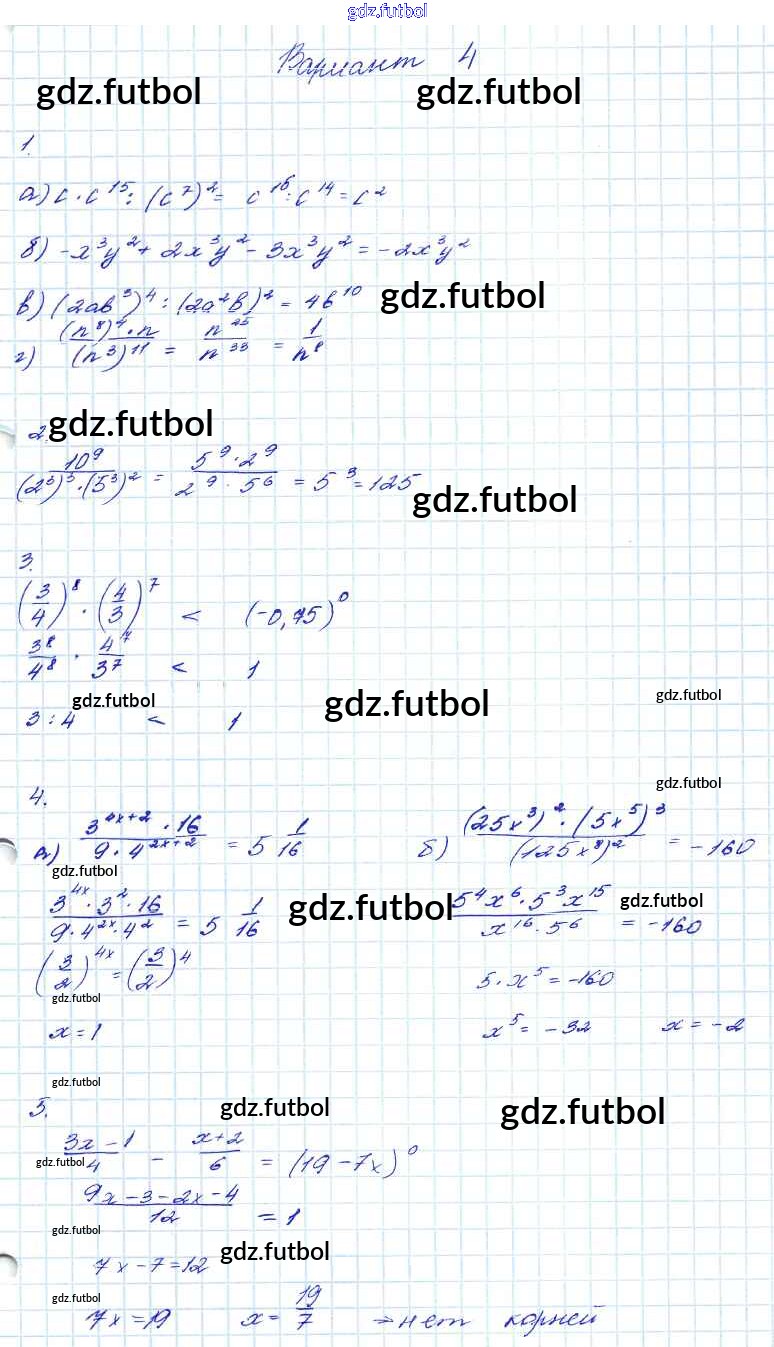 gdz.futbol
Вариант 4
gdz.futbol gdz.futbol
1.
а) c · c^15 : (c^7)^2 = c^16 : c^14 = c^2
б) -x^3y^2 + 2x^3y^2 - 3x^3y^2 = -2x^3y^2
в) (2ab^3)^4 : (2a^2b)^2 = 4b^10 gdz.futbol
г) (n^8)^4 · n / (n^3)^11 = n^25 / n^33 = 1 / n^8
2. gdz.futbol
10^9 / (2^3)^3 · (5^3)^2 = 5^9 · 2^9 / 2^9 · 5^6 = 5^3 = 125
gdz.futbol
3.
(3/4)^8 · (4/3)^7 < (-0,75)^0
3^8/4^8 · 4^7/3^7 < 1
gdz.futbol gdz.futbol gdz.futbol
3 : 4 < 1
gdz.futbol
4.
а) 3^4x+2 · 16 / 9 · 4^2x+2 = 5 1/16 б) (25x^3)^2 · (5x^5)^3 / (125x^8)^2 = -160
gdz.futbol
3^4x · 3^2 · 16 / 9 · 4^2x · 4^2 = 5 1/16 gdz.futbol 5^4x^6 · 5^3x^15 / x^16 · 5^6 = -160 gdz.futbol
(3/2)^4x = (3/2)^4 5 · x^5 = -160
gdz.futbol
x = 1 x^5 = -32 x = -2
gdz.futbol
5. gdz.futbol gdz.futbol
3x - 1 / 4 - x + 2 / 6 = (19 - 7x)^0
gdz.futbol
9x - 3 - 2x - 4 / 12 = 1
gdz.futbol gdz.futbol
7x - 7 = 12
gdz.futbol
7x = 19 x = 19/7 → нет корней